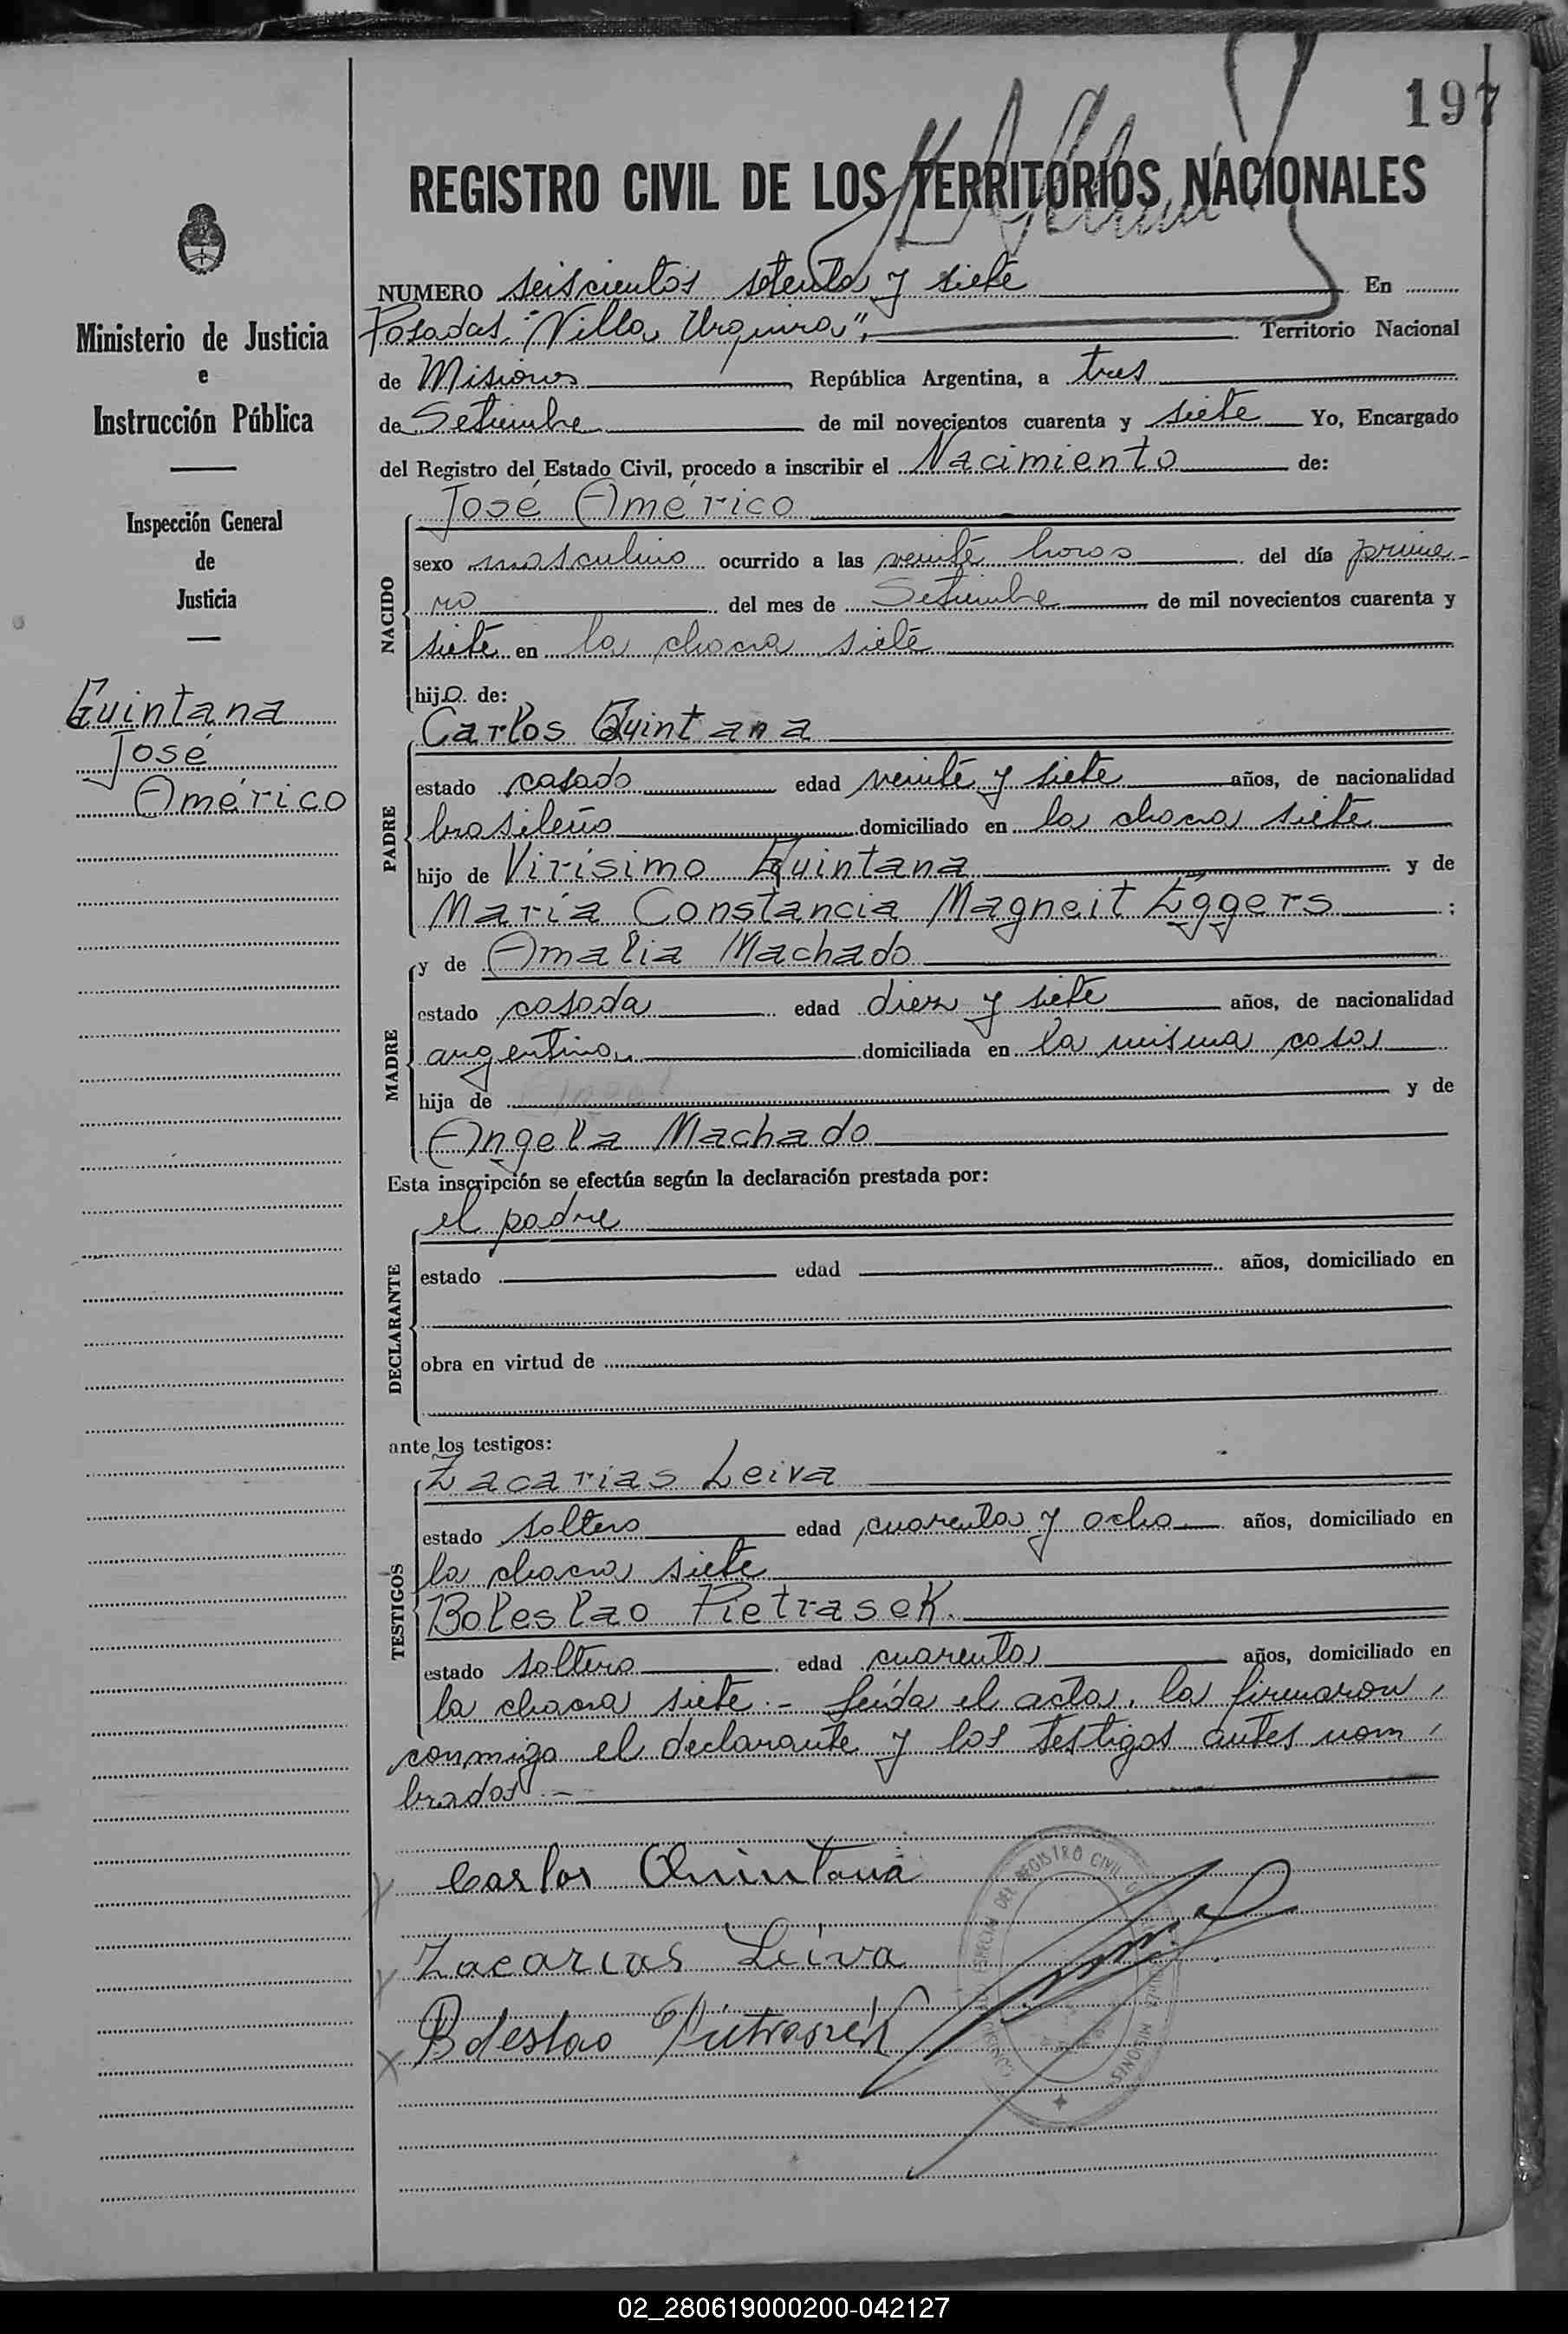 197
REGISTRO CIVIL DE LOS TERRITORIOS NACIONALES
Ministerio de Justicia
e
Instrucción Pública
Inspección General
de
Justicia
Quintana
José
Américo
NUMERO seiscientos setenta y siete En
Posadas "Villa Urquiza", Territorio Nacional
de Misiones, República Argentina, a tres
de Setiembre de mil novecientos cuarenta y siete Yo, Encargado
del Registro del Estado Civil, procedo a inscribir el Nacimiento de:
José Américo
NACIDO
sexo masculino ocurrido a las veinte horas del día prime-
ro del mes de Setiembre de mil novecientos cuarenta y
siete en la chacra siete
hijo de:
Carlos Quintana
PADRE
estado casado edad veinte y siete años, de nacionalidad
brasileño domiciliado en la chacra siete
hijo de Virísimo Quintana y de
María Constancia Magneit Eggers ;
MADRE
y de Amalia Machado
estado casada edad diez y siete años, de nacionalidad
argentina, domiciliada en la misma casa
hija de y de
Angela Machado
Esta inscripción se efectúa según la declaración prestada por:
el padre
DECLARANTE
estado edad años, domiciliado en
obra en virtud de
ante los testigos:
Zacarias Leiva
TESTIGOS
estado soltero edad cuarenta y ocho años, domiciliado en
la chacra siete
Boleslao Pietrasek.
estado soltero edad cuarenta años, domiciliado en
la chacra siete.- Leída el acta, la firmaron,
conmigo el declarante y los testigos antes nom-
brados.-
Carlos Quintana
Zacarias Leiva
Boleslao Pietrasek
DEL REGISTRO CIVIL
MISIONES
02_280619000200-042127